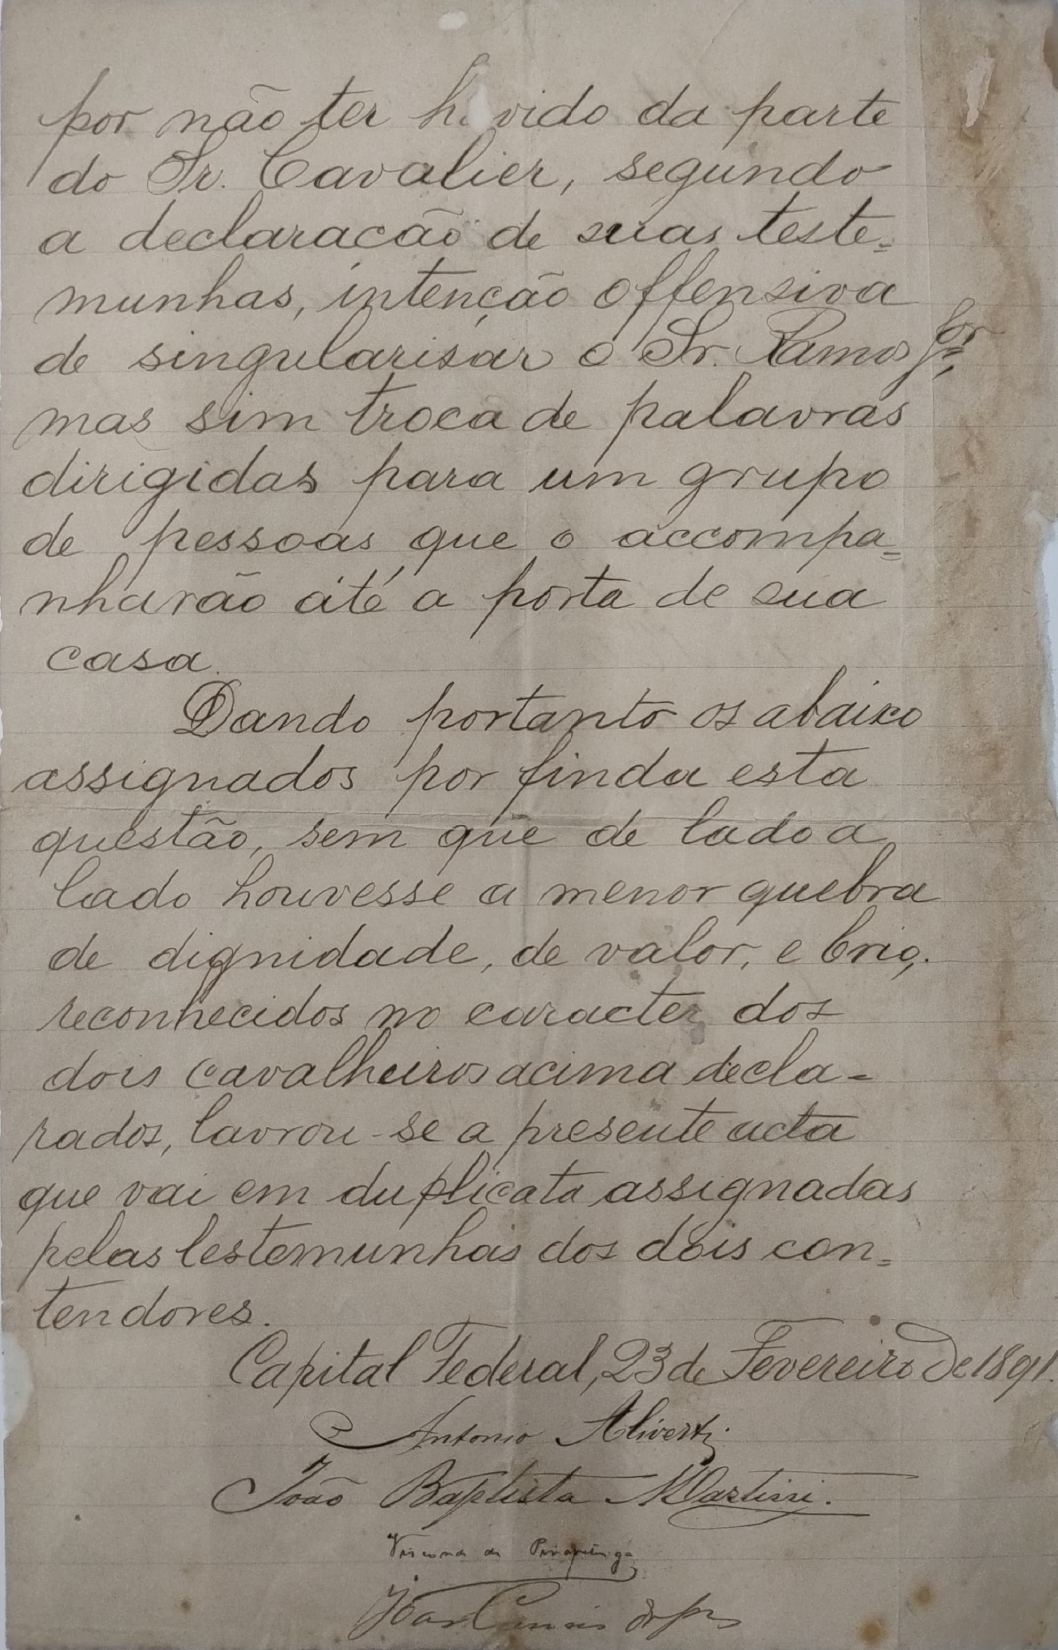 por não ter h vido da parte
do Sr. Cavalier, segundo
a declaracão de suas teste=
munhas, intenção offensiva
de singularisar o Sr. Ramos Jor,
mas sim troca de palavras
dirigidas para um grupo
de pessoas que o accompa=
nharão até a porta de sua
casa.
Dando portanto os abaixo
assignados por finda esta
questão, sem que de lado a
lado houvesse a menor quebra
de dignidade, de valor, e brio,
reconhecidos no caracter dos
dois cavalheiros acima decla-
rados, lavrou-se a presente acta
que vai em duplicata assignadas
pelas testemunhas dos dois con=
tendores.
Capital Federal, 23 de Fevereiro de 1891.
Antonio Aliverti
João Baptista Martini.
Visconde de
João